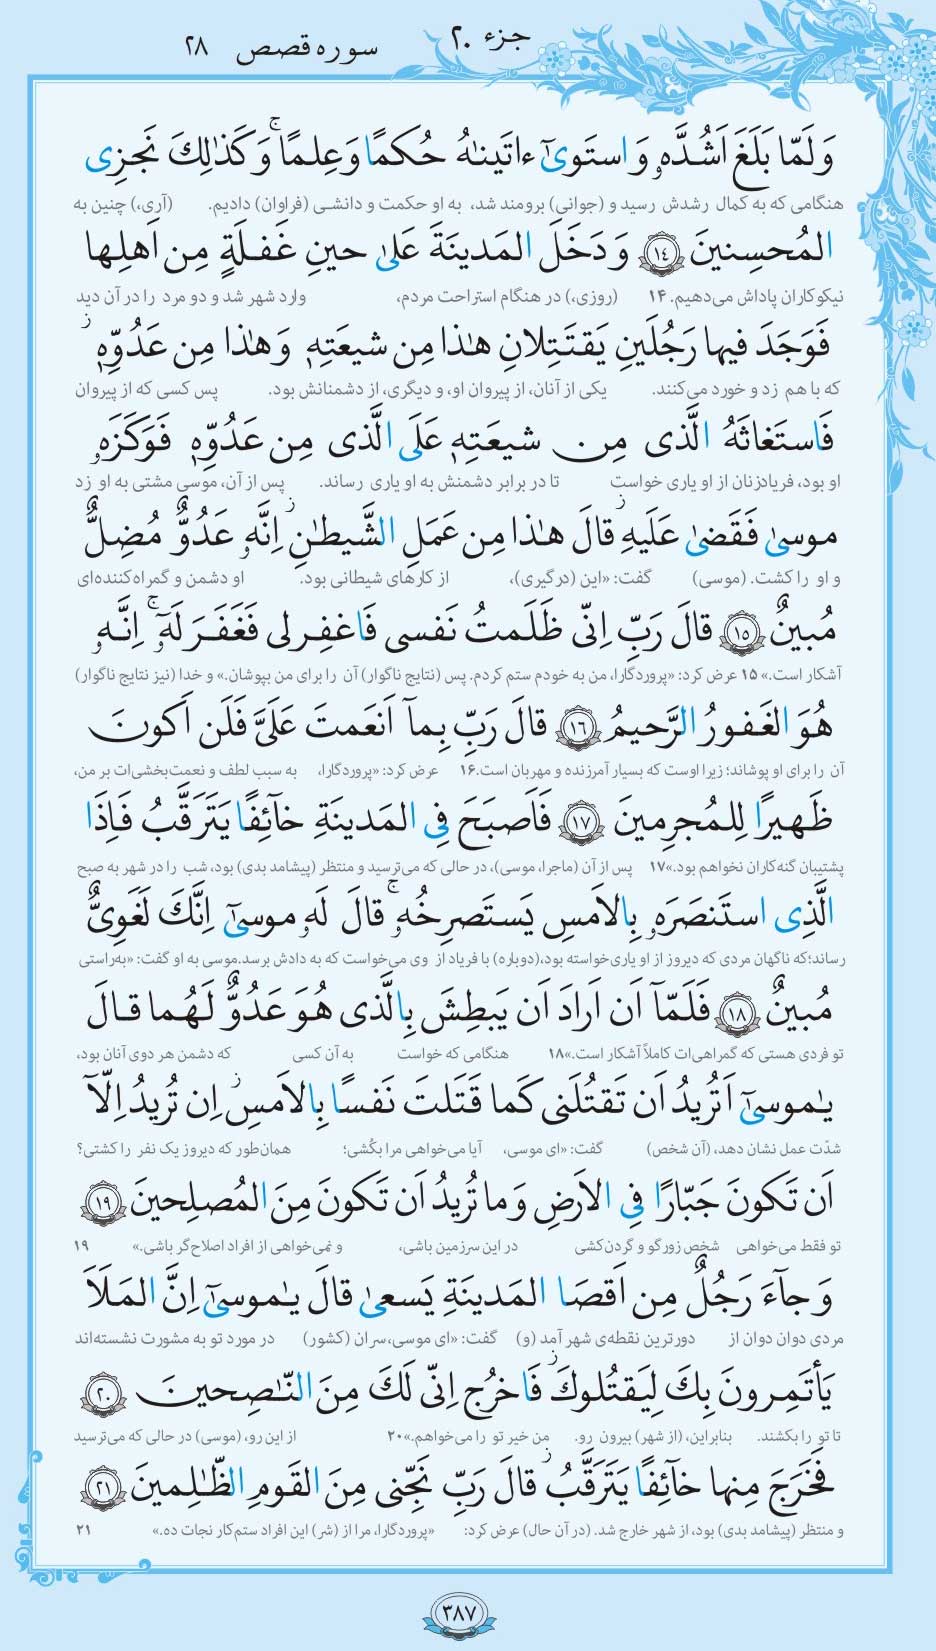 جزء ۲۰
سوره قصص ۲۸
وَلَمّا بَلَغَ اَشُدَّهٗ وَاستَوىٰٓ ءاتَينٰهُ حُكمًا وَعِلمًاۚ وَكَذٰلِكَ نَجزِى
هنگامی که به کمال رشدش رسید و (جوانی) برومند شد، به او حکمت و دانشی (فراوان) دادیم. (آری،) چنین به
المُحسِنينَ ﴿١٤﴾ وَدَخَلَ المَدينَةَ عَلىٰ حينِ غَفلَةٍ مِن اَهلِها
نیکوکاران پاداش می‌دهیم. ۱۴ (روزی،) در هنگام استراحت مردم، وارد شهر شد و دو مرد را در آن دید
فَوَجَدَ فيها رَجُلَينِ يَقتَتِلانِ هٰذا مِن شيعَتِهٖ وَهٰذا مِن عَدُوِّهٖۖ
که با هم زد و خورد می‌کنند. یکی از آنان، از پیروان او، و دیگری، از دشمنانش بود. پس کسی که از پیروان
فَاستَغاثَهُ الَّذى مِن شيعَتِهٖ عَلَى الَّذى مِن عَدُوِّهٖ فَوَكَزَهٗ
او بود، فریادزنان از او یاری خواست تا در برابر دشمنش به او یاری رساند. پس از آن، موسی مشتی به او زد
موسىٰ فَقَضىٰ عَلَيهِۖ قالَ هٰذا مِن عَمَلِ الشَّيطٰنِۖ اِنَّهٗ عَدُوٌّ مُضِلٌّ
و او را کشت. (موسی) گفت: «این (درگیری)، از کارهای شیطانی بود. او دشمن و گمراه‌کننده‌ای
مُبينٌ ﴿١٥﴾ قالَ رَبِّ اِنّى ظَلَمتُ نَفسى فَاغفِرلى فَغَفَرَ لَهٗٓۚ اِنَّهٗ
آشکار است.» ۱۵ عرض کرد: «پروردگارا، من به خودم ستم کردم. پس (نتایج ناگوار) آن را برای من بپوشان.» و خدا (نیز نتایج ناگوار)
هُوَ الغَفورُ الرَّحيمُ ﴿١٦﴾ قالَ رَبِّ بِمآ اَنعَمتَ عَلَىَّ فَلَن اَكونَ
آن را برای او پوشاند؛ زیرا اوست که بسیار آمرزنده و مهربان است.۱۶ عرض کرد: «پروردگارا، به سبب لطف و نعمت‌بخشی‌ات بر من،
ظَهيرًا لِلمُجرِمينَ ﴿١٧﴾ فَاَصبَحَ فِى المَدينَةِ خآئِفًا يَتَرَقَّبُ فَاِذَا
پشتیبان گنه‌کاران نخواهم بود.»۱۷ پس از آن (ماجرا، موسی)، در حالی که می‌ترسید و منتظر (پیشامد بدی) بود، شب را در شهر به صبح
الَّذِى استَنصَرَهٗ بِالاَمسِ يَستَصرِخُهٗۚ قالَ لَهٗ موسىٰٓ اِنَّكَ لَغَوِىٌّ
رساند؛که ناگهان مردی که دیروز از او یاری‌خواسته بود،(دوباره) با فریاد از وی می‌خواست که به دادش برسد.موسی به او گفت: «به‌راستی
مُبينٌ ﴿١٨﴾ فَلَمّآ اَن اَرادَ اَن يَبطِشَ بِالَّذى هُوَ عَدُوٌّ لَهُما قالَ
تو فردی هستی که گمراهی‌ات کاملاً آشکار است.»۱۸ هنگامی که خواست به آن کسی که دشمن هر دوی آنان بود،
يٰموسىٰٓ اَتُريدُ اَن تَقتُلَنى كَما قَتَلتَ نَفسًا بِالاَمسِۖ اِن تُريدُ اِلّآ
شدّت عمل نشان دهد، (آن شخص) گفت: «ای موسی، آیا می‌خواهی مرا بکُشی؛ همان‌طور که دیروز یک نفر را کشتی؟
اَن تَكونَ جَبّارًا فِى الاَرضِ وَما تُريدُ اَن تَكونَ مِنَ المُصلِحينَ ﴿١٩﴾
تو فقط می‌خواهی شخص زورگو و گردن‌کشی در این سرزمین باشی، و نمی‌خواهی از افراد اصلاح‌گر باشی.» ۱۹
وَجآءَ رَجُلٌ مِن اَقصَا المَدينَةِ يَسعىٰ قالَ يٰموسىٰٓ اِنَّ المَلَاَ
مردی دوان دوان از دورترین نقطه‌ی شهر آمد (و) گفت: «ای موسی،سران (کشور) در مورد تو به مشورت نشسته‌اند
يَأتَمِرونَ بِكَ لِيَقتُلوكَۖ فَاخرُج اِنّى لَكَ مِنَ النّٰصِحينَ ﴿٢٠﴾
تا تو را بکشند. بنابراین، (از شهر) بیرون رو. من خیر تو را می‌خواهم.»۲۰ از این رو، (موسی) در حالی که می‌ترسید
فَخَرَجَ مِنها خآئِفًا يَتَرَقَّبُۖ قالَ رَبِّ نَجِّنى مِنَ القَومِ الظّٰلِمينَ ﴿٢١﴾
و منتظر (پیشامد بدی) بود، از شهر خارج شد. (در آن حال) عرض کرد: «پروردگارا، مرا از (شر) این افراد ستم‌کار نجات ده.» ۲۱
۳۸۷